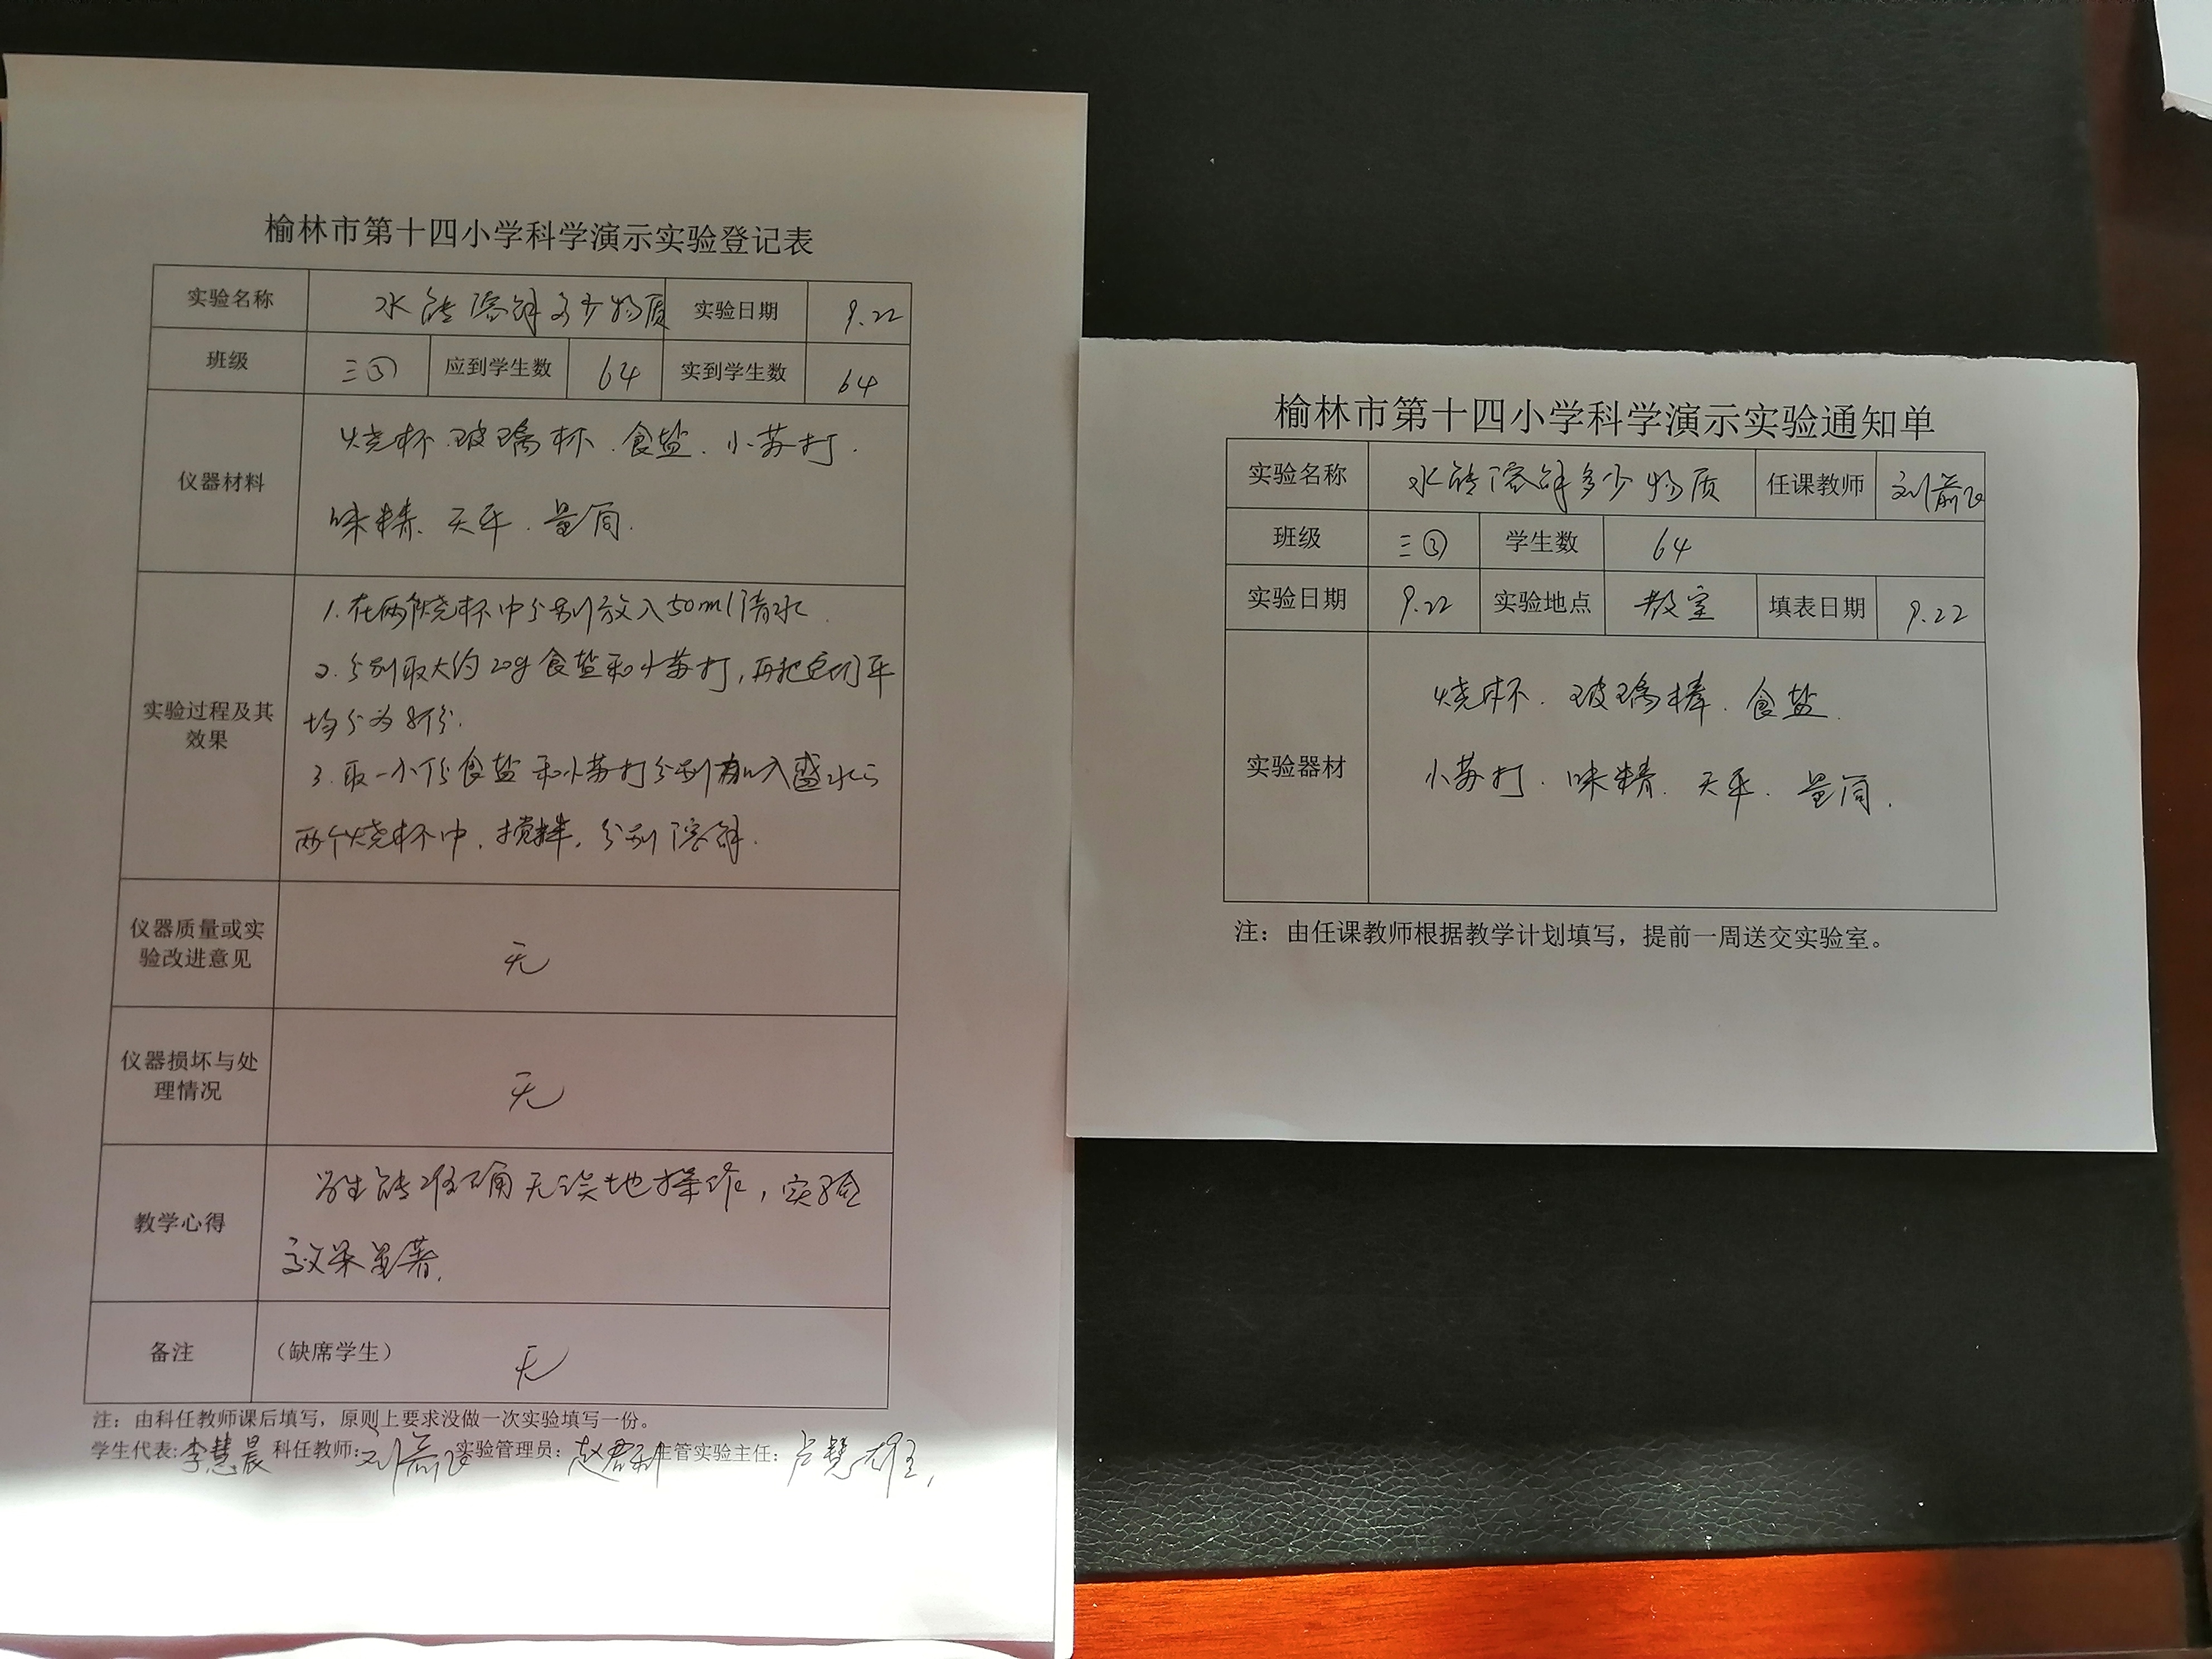 榆林市第十四小学科学演示实验登记表
实验名称 水能溶解多少物质 实验日期 9.22
班级 三③ 应到学生数 64 实到学生数 64
仪器材料 烧杯.玻璃杯.食盐.小苏打.
味精.天平.量筒.
1.在两个烧杯中分别放入50ml清水.
2.分别取大约20g食盐和小苏打,再把它们平
均分为8份.
实验过程及其
效果
3.取一小份食盐和小苏打分别加入盛水的
两个烧杯中.搅拌.分别溶解.
仪器质量或实
验改进意见
无
仪器损坏与处
理情况
无
教学心得 学生能准确无误地操作,实验
效果显著.
备注 (缺席学生) 无
注：由科任教师课后填写，原则上要求没做一次实验填写一份。
学生代表:李慧晨 科任教师: 实验管理员: 主管实验主任:
榆林市第十四小学科学演示实验通知单
实验名称 水能溶解多少物质 任课教师
班级 三③ 学生数 64
实验日期 9.22 实验地点 教室 填表日期 9.22
实验器材 烧杯.玻璃棒.食盐.
小苏打.味精.天平.量筒.
注：由任课教师根据教学计划填写，提前一周送交实验室。